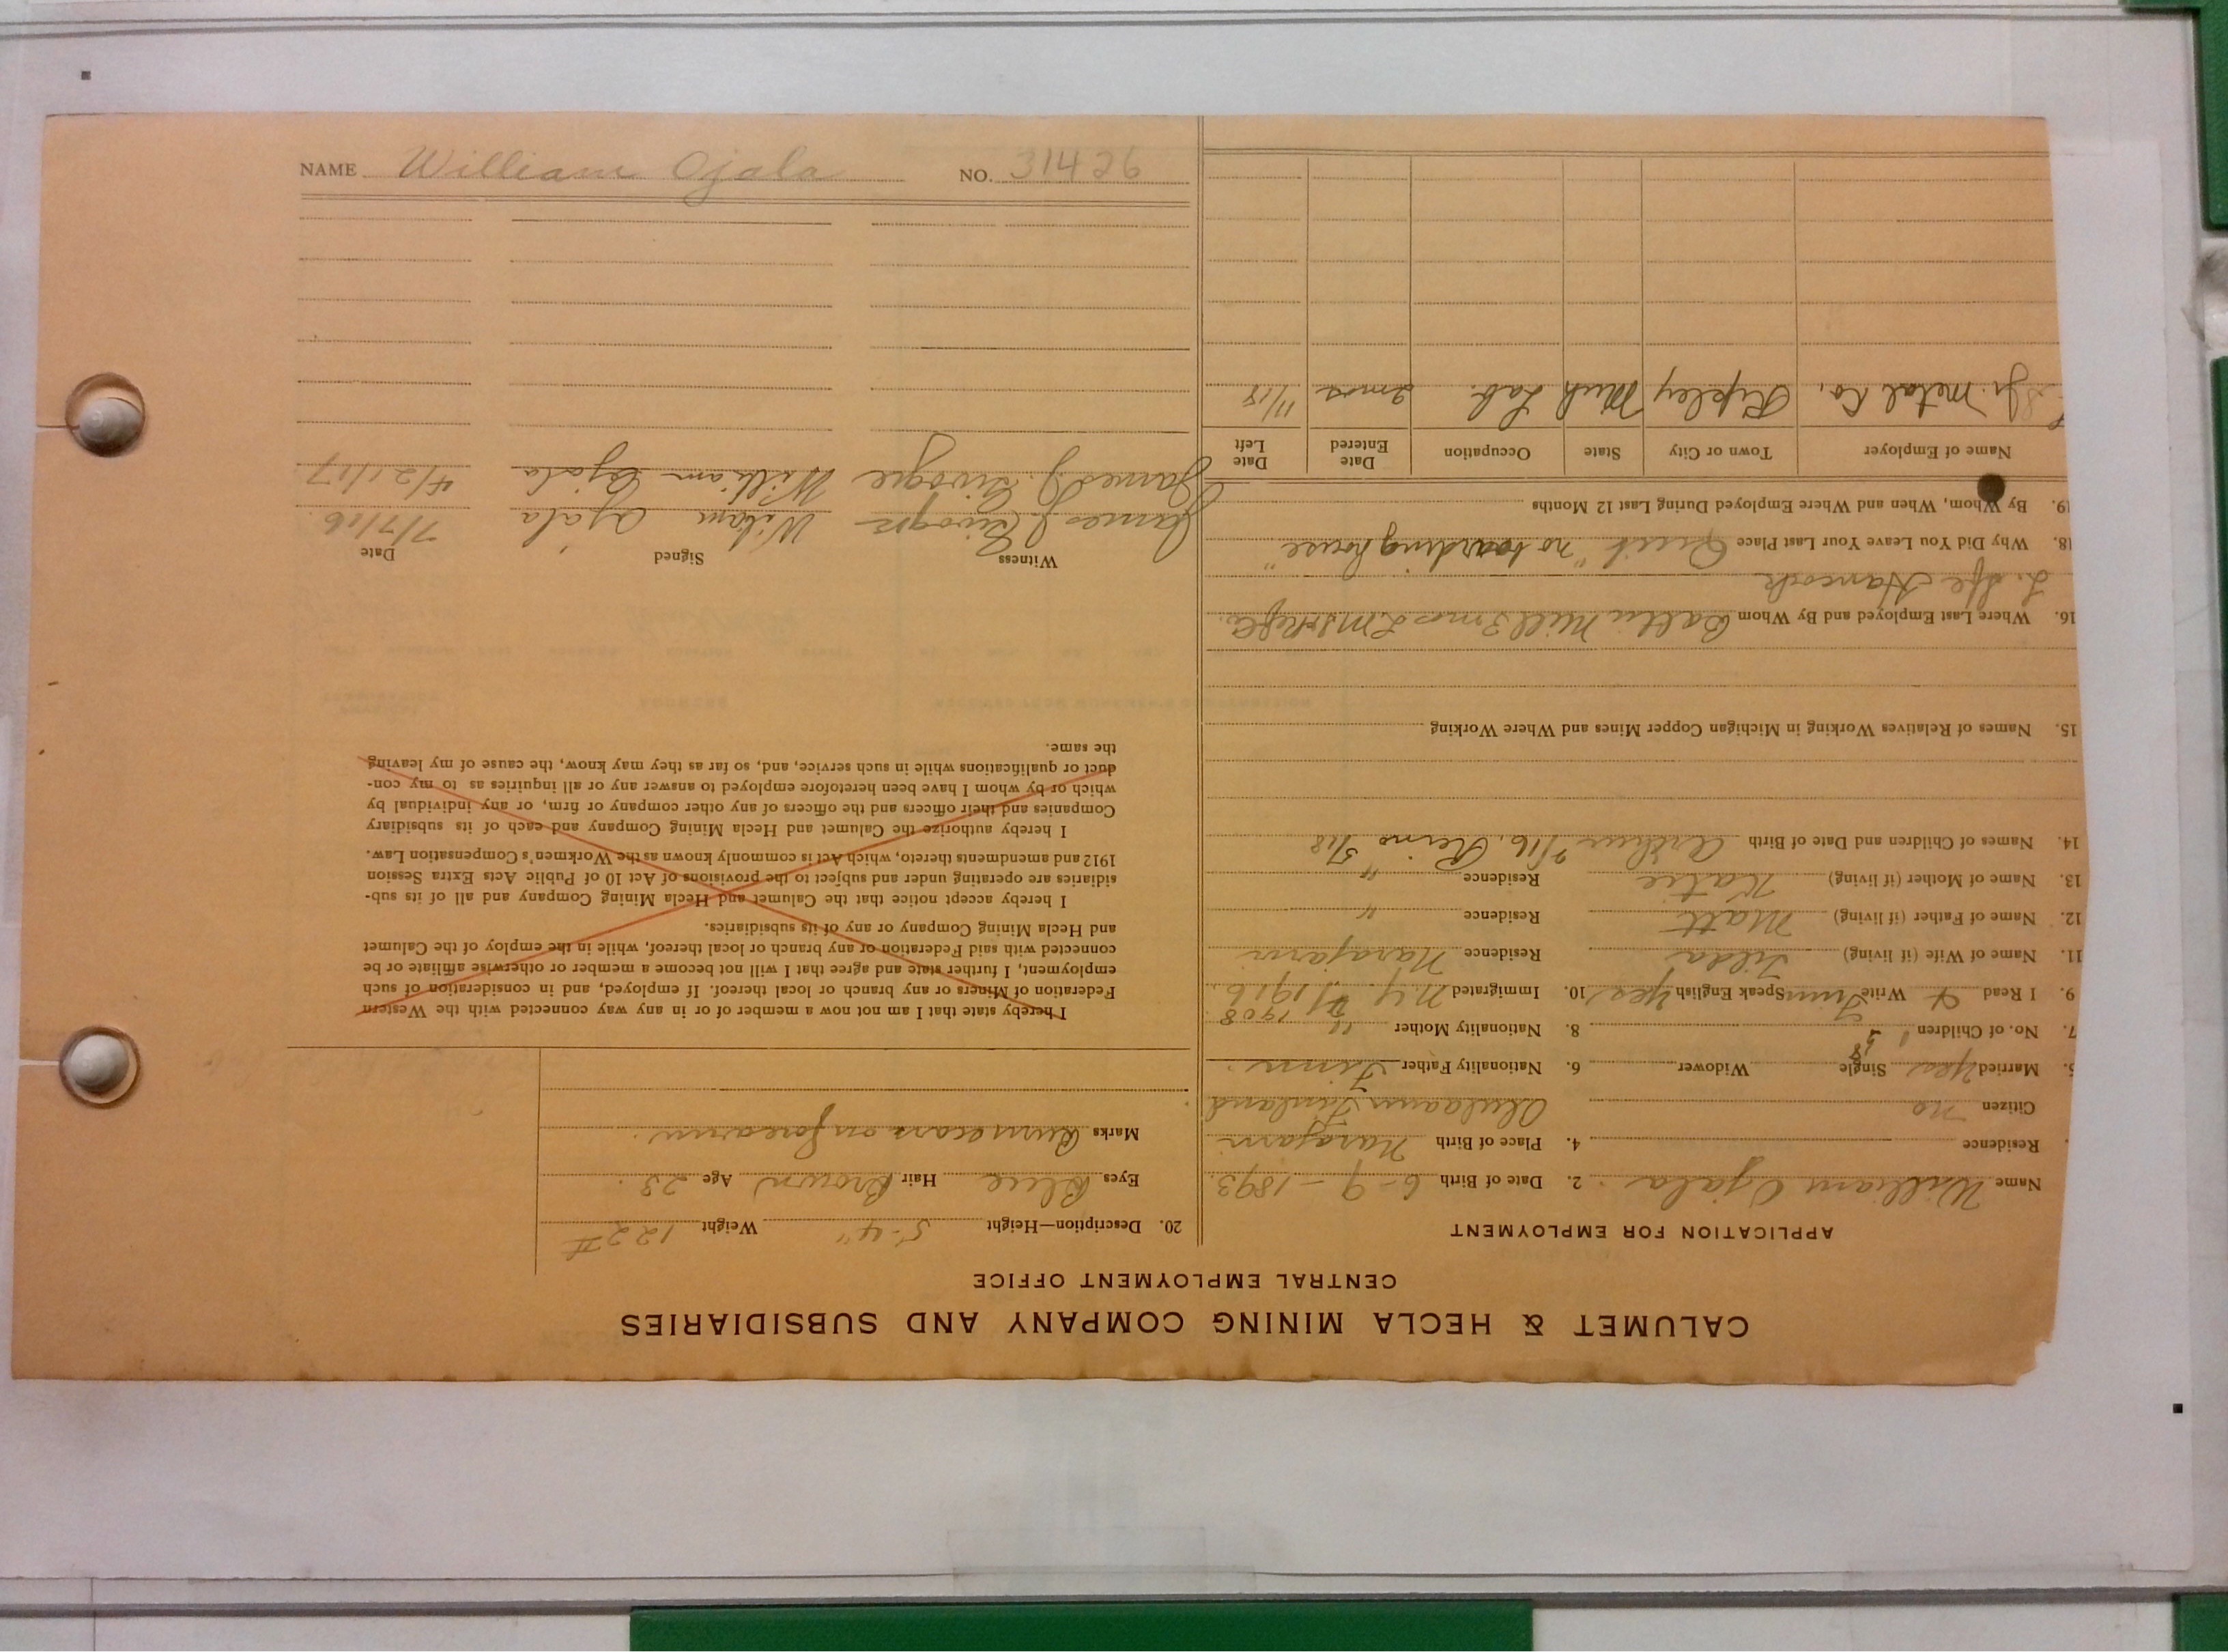 CALUMET & HECLA MINING COMPANY AND SUBSIDIARIES
CENTRAL EMPLOYMENT OFFICE
APPLICATION FOR EMPLOYMENT
Name William Ojala. 2. Date of Birth 6-9-1893.
Residence 4. Place of Birth
Citizen no Finland
Married Yes Single Widower 6. Nationality Father Finn.
7. No. of Children 8. Nationality Mother "
9. I Read & Write Finn Speak English Yes 10. Immigrated N.Y. 1916.
1908
11. Name of Wife (if living) Tilda Residence
12. Name of Father (if living) Matt Residence "
13. Name of Mother (if living) Katie Residence "
14. Names of Children and Date of Birth
15. Names of Relatives Working in Michigan Copper Mines and Where Working
16. Where Last Employed and By Whom Baltic Mill 3 mos
Hancock
18. Why Did You Leave Your Last Place Quit "no boarding house"
19. By Whom, When and Where Employed During Last 12 Months
Name of Employer Town or City State Occupation Date Entered Date Left
Metal Co. Ripley Mich Lab. 2 mos 11/18
20. Description—Height 5-4" Weight 122 #
Eyes Blue Hair Brown Age 23.
Marks Burn scars on forearm.
I hereby state that I am not now a member of or in any way connected with the Western
Federation of Miners or any branch or local thereof. If employed, and in consideration of such
employment, I further state and agree that I will not become a member or otherwise affiliate or be
connected with said Federation or any branch or local thereof, while in the employ of the Calumet
and Hecla Mining Company or any of its subsidiaries.
I hereby accept notice that the Calumet and Hecla Mining Company and all of its sub-
sidiaries are operating under and subject to the provisions of Act 10 of Public Acts Extra Session
1912 and amendments thereto, which Act is commonly known as the Workmen's Compensation Law.
I hereby authorize the Calumet and Hecla Mining Company and each of its subsidiary
Companies and their officers and the officers of any other company or firm, or any individual by
which or by whom I have been heretofore employed to answer any or all inquiries as to my con-
duct or qualifications while in such service, and, so far as they may know, the cause of my leaving
the same.
Witness Signed Date
James J. William Ojala 7/7/16.
James J. William Ojala 4/21/17
NAME William Ojala NO. 31426